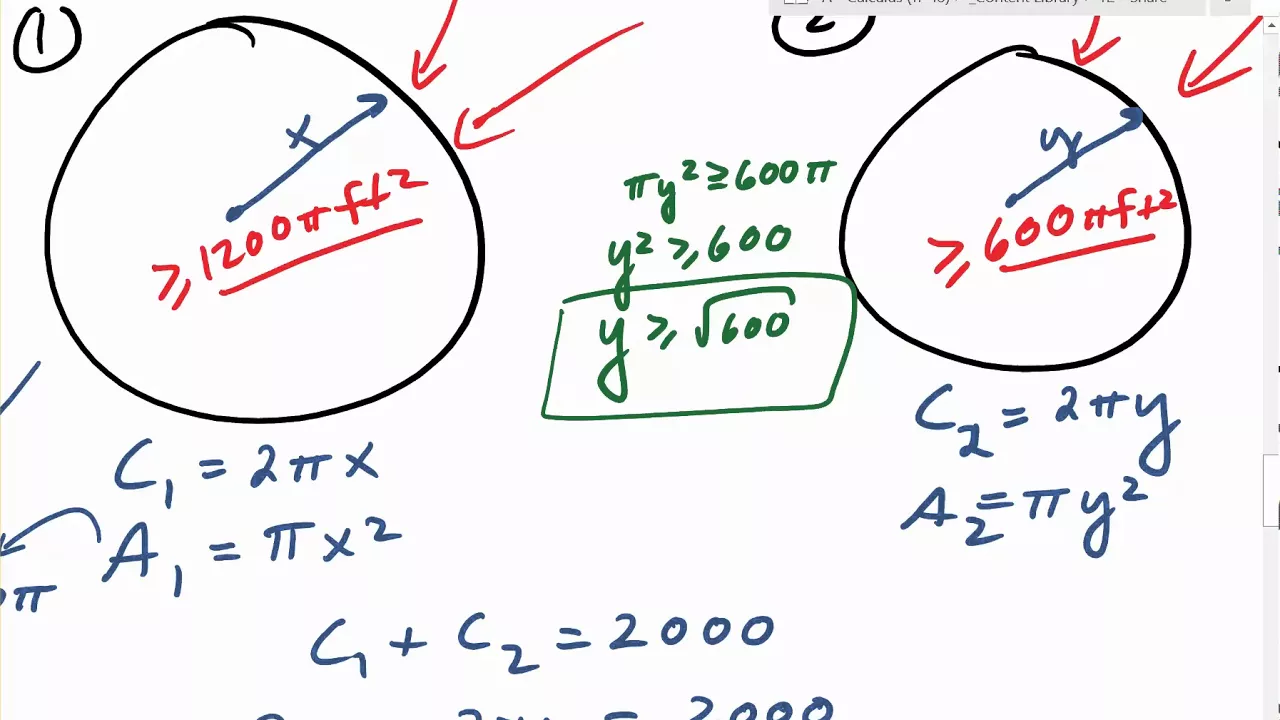 ①
x
≥ 1200πft2
πy² ≥ 600π
y² ≥ 600
y ≥ √600
2
y
≥ 600πft2
C₁ = 2πx
A₁ = πx²
C₂ = 2πy
A₂ = πy²
π
C₁ + C₂ = 2000
= 2000